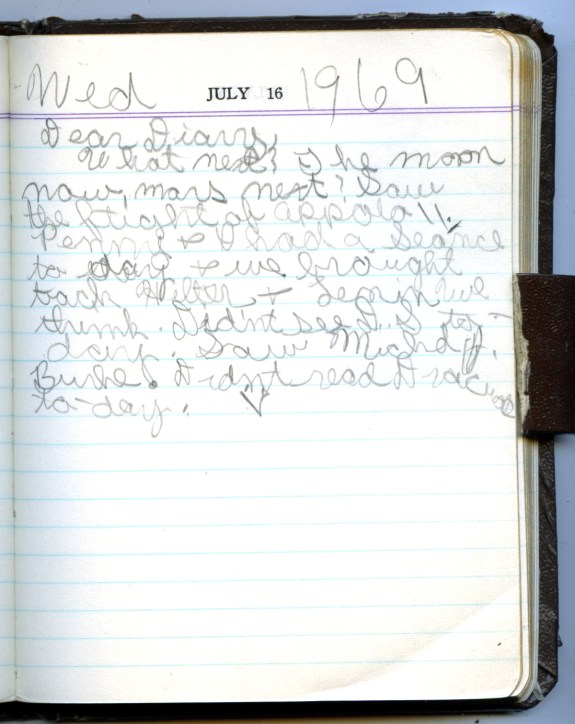 Wed JULY 16 1969
Dear Diary,
What next? The moon
now, mars next! Saw
the flight of appolo 11.
Penny & I had a Seance
to day & we brought
back Hilter + we
think. Didn't see to-
day. Saw
Burke. Didn't read
to-day.